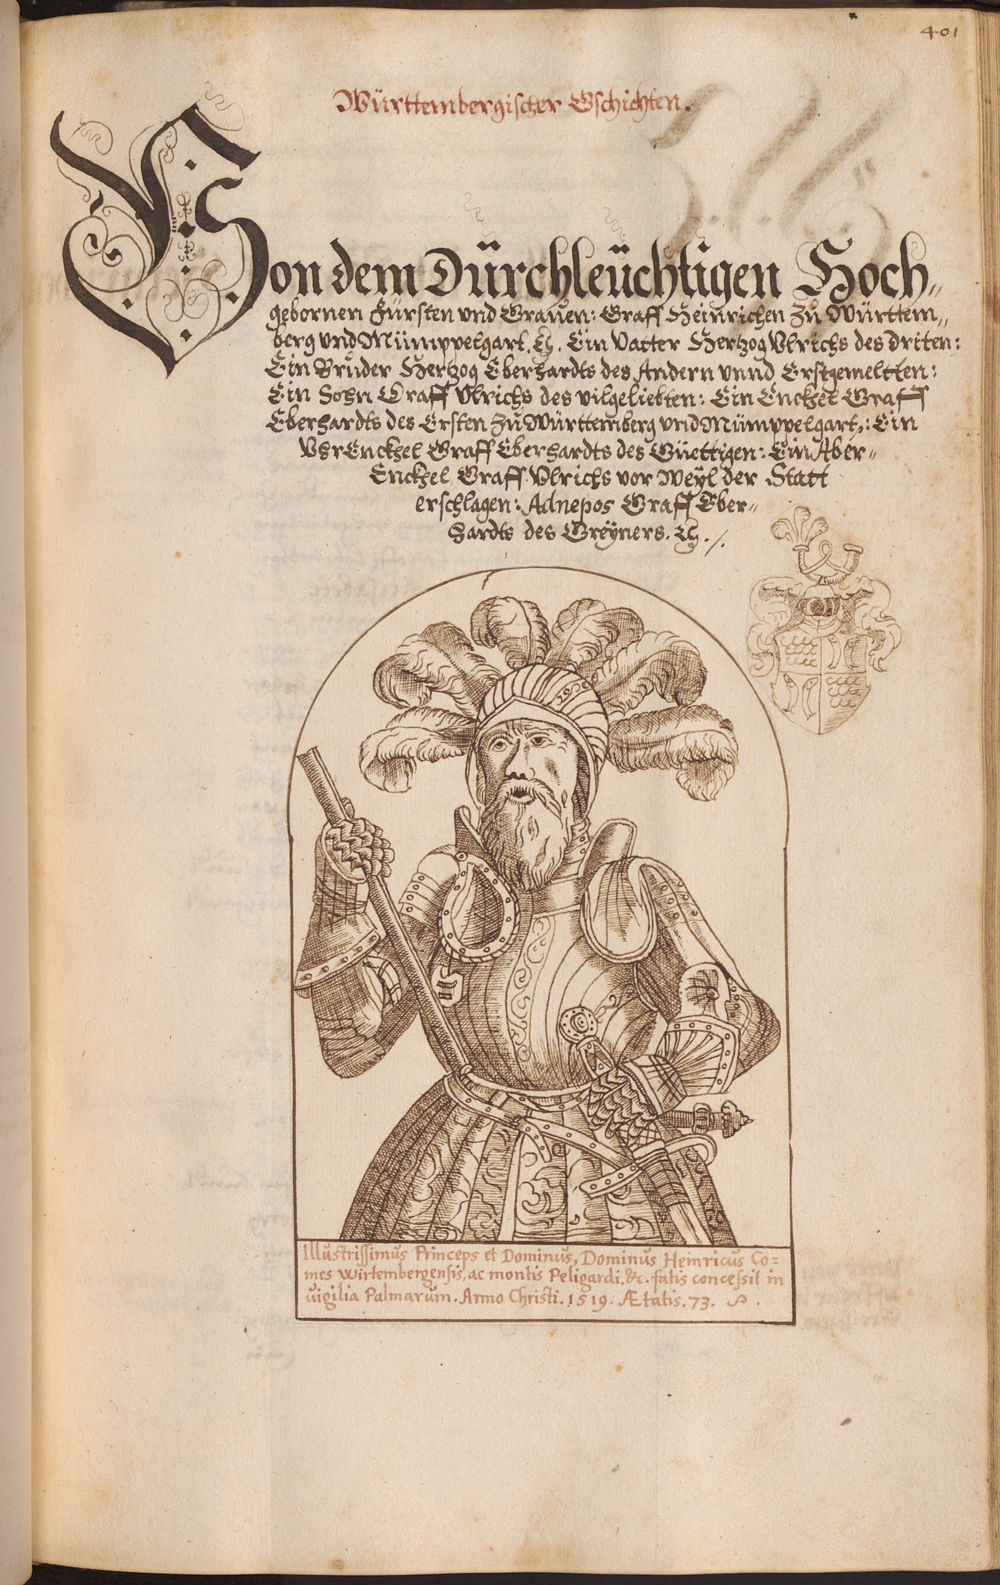 401
Württembergischer Gschichten.
Von dem Dürchleüchtigen Hoch„
gebornen Fürsten vnd Grauen: Graff Heinrichen Zu Württem„
berg vnd Mümppelgart. Ec. Ein Vatter Hertzog Vlrichs des driten:
Ein Bruder Hertzog Eberhardts des Andern vnnd Erstgemeltten:
Ein Sohn Graff Vlrichs des vilgeliebten: Ein Enckhel Graff
Eberhardts des Ersten Zu Württemberg vnd Mümppelgart,: Ein
VhrEnckhel Graff Eberhardts des Güettigen: Ein Aber„
Enckhel Graff Vlrichs vor Weyl der Statt
erschlagen: Adnepos Graff Eber„
hardts des Greyners. Ec. /.
Illustrissimus Princeps et Dominus, Dominus Henricus Co=
mes Wirtembergensis, ac montis Peligardi. &c. fatis concessit in
vigilia Palmarum. Anno Christi. 1519. Ætatis. 73.